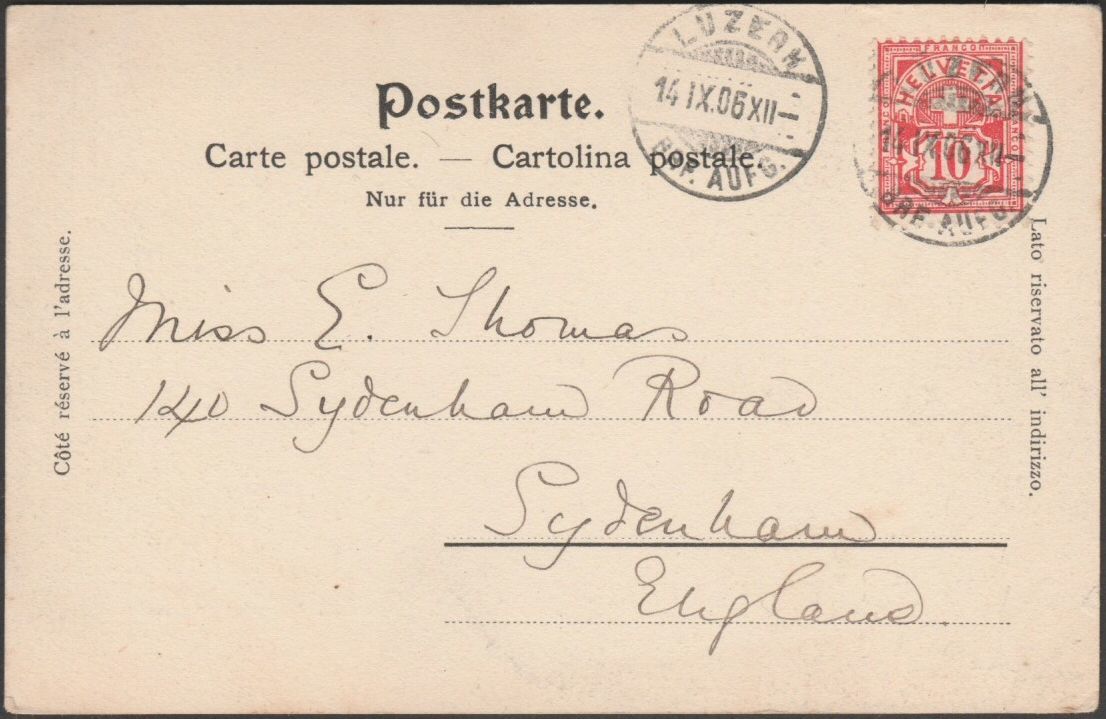 Postkarte.
Carte postale. — Cartolina postale.
Nur für die Adresse.
LUZERN
14 IX.06 XII—
BRF. AUFG.
FRANCO
HELVETIA
10
LUZERN
14 IX.06 XII—
BRF. AUFG.
Côté réservé à l'adresse.
Lato riservato all' indirizzo.
Miss E. Thomas
140 Sydenham Road
Sydenham
England.